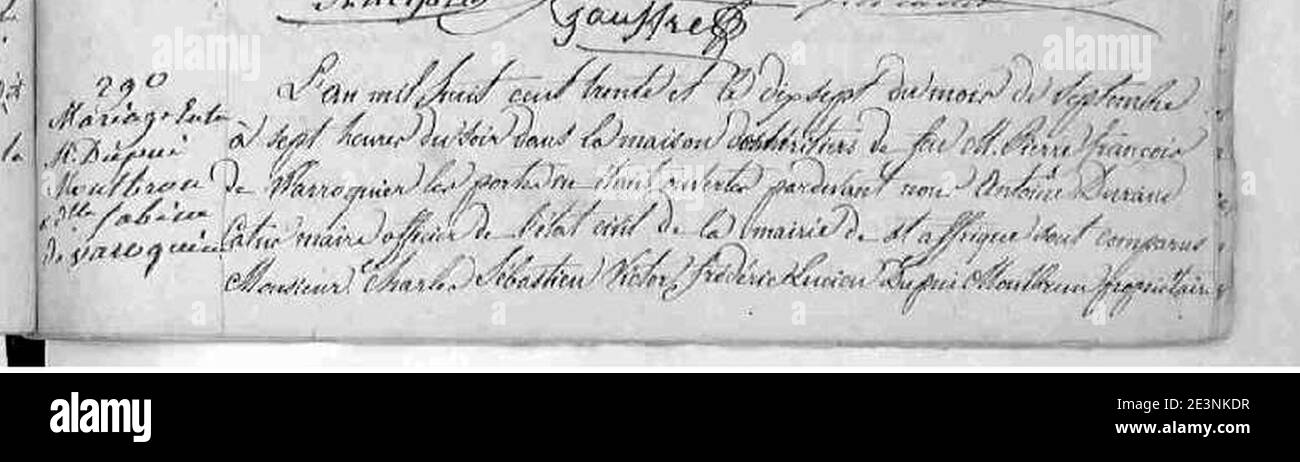 Gauffre
29º
Mariage Entre
Mr. Dupui
Montbrun
et dlle Sabine
de varoquier
L'an mil huit cent trente et le dix sept du mois de Septembre
à sept heures du soir dans la maison des héritiers de feu M. Pierre François
de Warroquier les portes en étant ouvertes pardevant nous Antoine Durand
maire officier de l'état civil de la mairie de St affrique sont comparus
Monsieur Charles Sébastien Victor Frédéric Lucien Dupui Montbrun propriétaire
la
alamy
Image ID: 2E3NKDR
www.alamy.com